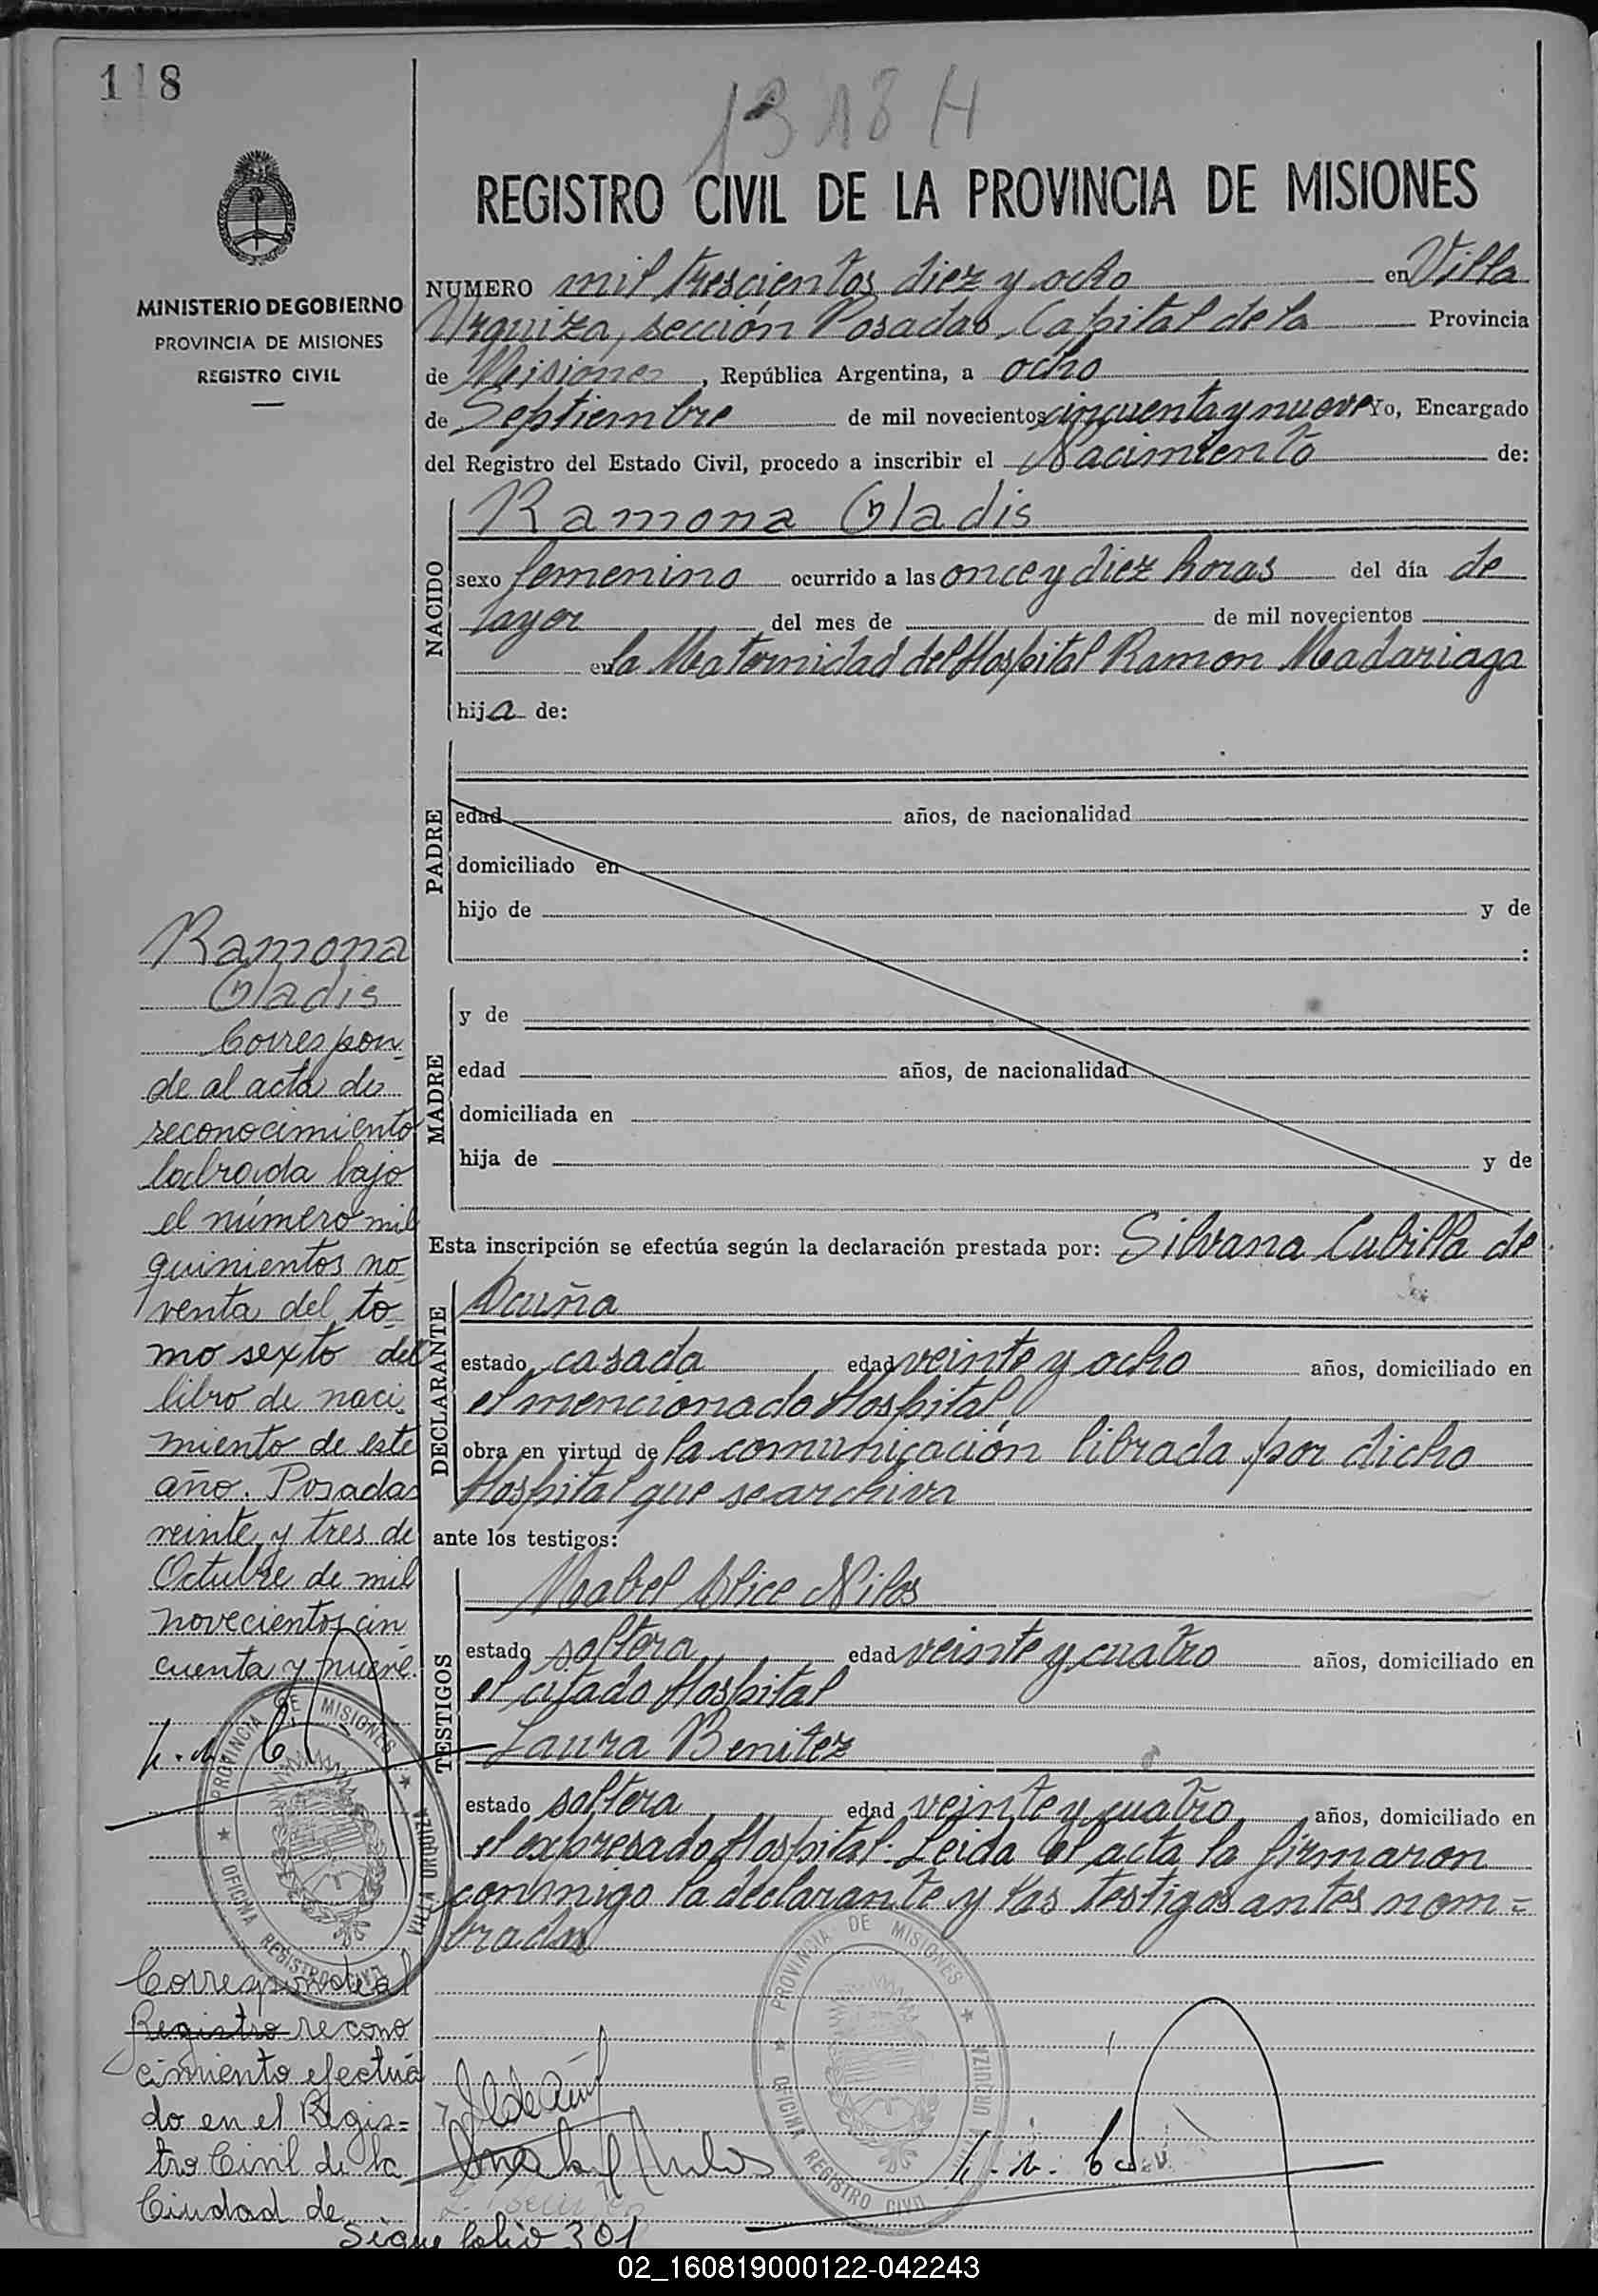 118
1318 H
REGISTRO CIVIL DE LA PROVINCIA DE MISIONES
MINISTERIO DE GOBIERNO
PROVINCIA DE MISIONES
REGISTRO CIVIL
NUMERO mil trescientos diez y ocho en Villa
Urquiza, sección Posadas, Capital de la Provincia
de Misiones, República Argentina, a ocho
de Septiembre de mil novecientos cincuenta y nueve Yo, Encargado
del Registro del Estado Civil, procedo a inscribir el Nacimiento de:
NACIDO
Ramona Gladis
sexo femenino ocurrido a las once y diez horas del día de
ayer del mes de de mil novecientos
en la Maternidad del Hospital Ramon Madariaga
hija de:
PADRE
edad años, de nacionalidad
domiciliado en
hijo de y de
:
MADRE
y de
edad años, de nacionalidad
domiciliada en
hija de y de
Esta inscripción se efectúa según la declaración prestada por: Silvana Cubilla de
DECLARANTE
Acuña
estado casada edad veinte y ocho años, domiciliado en
el mencionado Hospital
obra en virtud de la comunicación librada por dicho
Hospital que se archiva
ante los testigos:
TESTIGOS
Mabel Alice Nilos
estado soltera edad veinte y cuatro años, domiciliado en
el citado Hospital
Laura Benitez
estado soltera edad veinte y cuatro años, domiciliado en
el expresado Hospital. Leida el acta la firmaron
conmigo la declarante y las testigos antes nom=
bradas
Ramona
Gladis
Correspon-
de al acta de
reconocimiento
labrada bajo
el número mil
quinientos no-
venta del to-
mo sexto del
libro de naci-
miento de este
año. Posadas
veinte y tres de
Octubre de mil
novecientos cin
cuenta y nueve.
PROVINCIA DE MISIONES
VILLA URQUIZA
OFICINA REGISTRO CIVIL
Corresponde al
Registro recono
cimiento efectua
do en el Regis=
tro Civil de la
Ciudad de
Sigue folio 301
PROVINCIA DE MISIONES
VILLA URQUIZA
OFICINA REGISTRO CIVIL
02_160819000122-042243